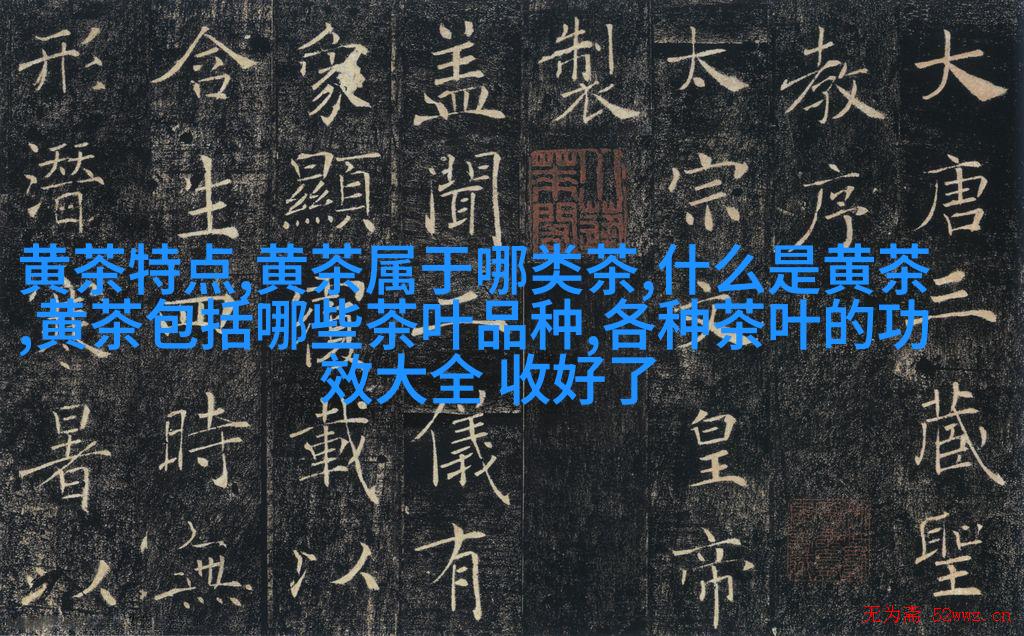 黄茶特点,黄茶属于哪类茶,什么是黄茶
,黄茶包括哪些茶叶品种,各种茶叶的功
效大全 收好了
大唐三藏聖
教序
太宗皇帝
製
盖聞二儀有
象顯載以
含生時無
形潛暑以
无为斋 52wwz.cn